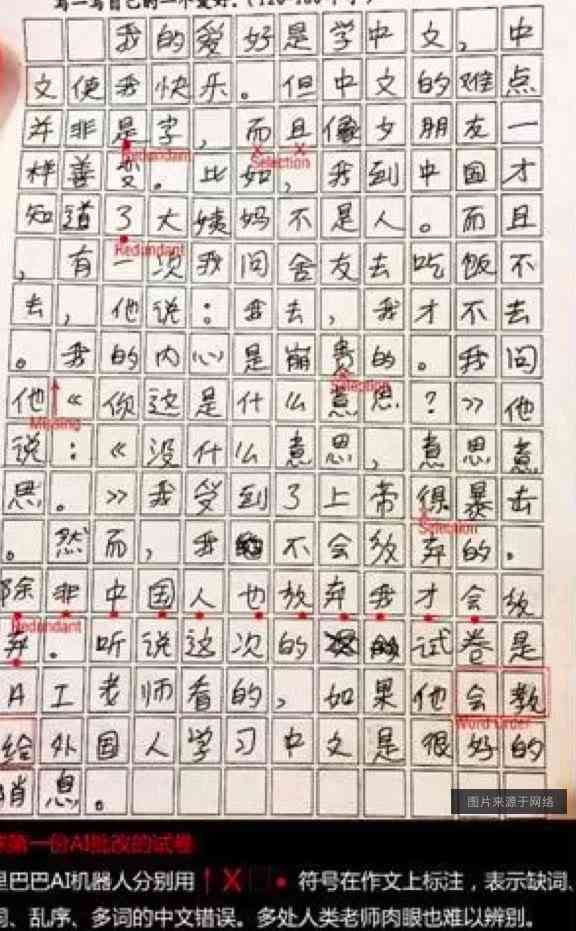 写一写自己的一个爱好.(120-160个字)
我的爱好是学中文，中
文使我快乐。但中文的难点
并非是字，而且像女朋友一
Redundant Selection
样善变。比如，我到中国才
知道了大姨妈不是人。而且
Redundant
，有一次我问舍友去吃饭不
去，他说：我去，我才不去
。我的内心是崩溃的。我问
Selection
他《你这是什么意思？》他
Missing
说：《没什么意思，意思意
思。》我受到了上帝得暴击
Selection
。然而，我不会放弃的。
除非中国人也放弃我才会放
Redundant
弃。听说这次的试卷是
AI老师看的，如果他会教
Word Order
给外国人学习中文是很好的
消息。
图片来源于网络
第一份AI批改的试卷
里巴巴AI机器人分别用 ↑ X □ • 符号在作文上标注，表示缺词、
词、乱序、多词的中文错误。多处人类老师肉眼也难以辨别。